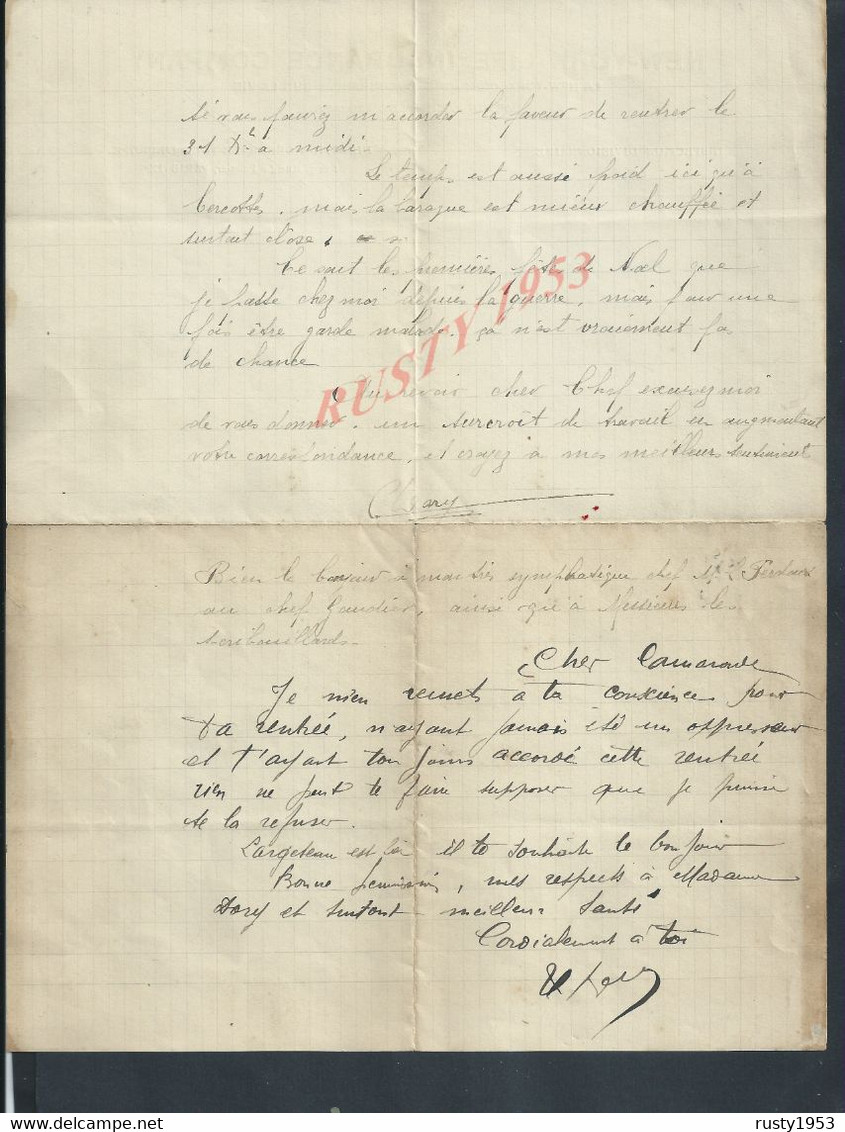 si vous pouviez m'accorder la faveur de rentrer le
31 Xbre à midi.
Le temps est aussi froid ici qu'à
Cercottes, mais la baraque est mieux chauffée et
surtout close.
Ce sont les premières fêtes de Noël que
je passe chez moi depuis la guerre, mais pour une
fois être garde malade, ça n'est vraiement pas
de chance
Au revoir cher Chef excusez moi
de vous donner un surcroît de travail en augmentant
votre correspondance, et croyez à mes meilleurs sentiments
Dorey
Bien le bonjour à mon très symphatique chef Mr
au chef Gaudier, ainsi qu'à Messieurs les
scribouillards.
Cher Camarade
Je m'en remets à ta conscience pour
ta rentrée, n'ayant jamais été un oppresseur
et t'ayant toujours accordé cette rentrée
rien ne peut te faire supposer que je puisse
te la refuser.
Largeteau est là il te souhaite le bonjour
Bonne permission, mes respects à Madame
Dorey et surtout meilleur santé
Cordialement à toi
RUSTY 1953
delcampe.net
rusty1953